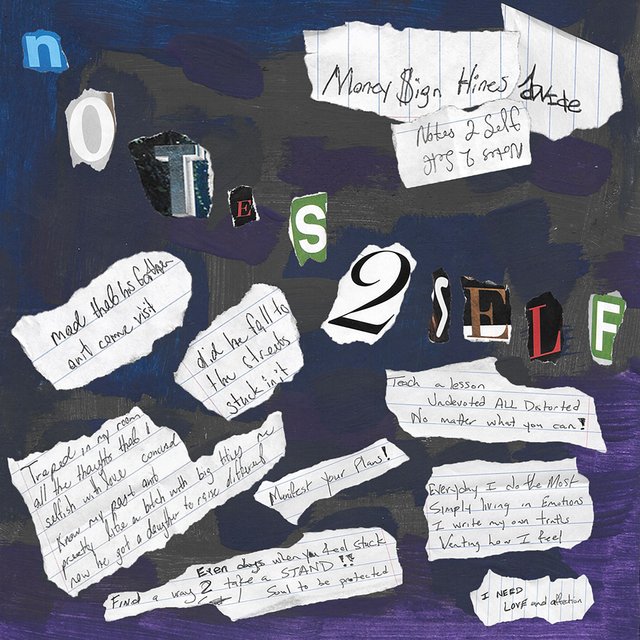 Money $ign Hines
Notes 2 Self
Notes 2 Self
nOTES
2 SELF
mad thab his
ant come visit
did he fall to
the streets
stuck in it
Teach a lesson
Undevoted ALL Distorted
No matter what you can!
Traped in my room
all the thoughts thab I
selfish with love
Know my past and
pressty like a bitch with big
now he got a daughter to raise different
Manifest Your Plans!
Everyday I do the Most
Simply living in Emotions
I write my own truths
Venting how I feel
Even days when you feel stuck
Find a way 2 take a STAND !!
Soul to be protected
I NEED
LOVE and affection